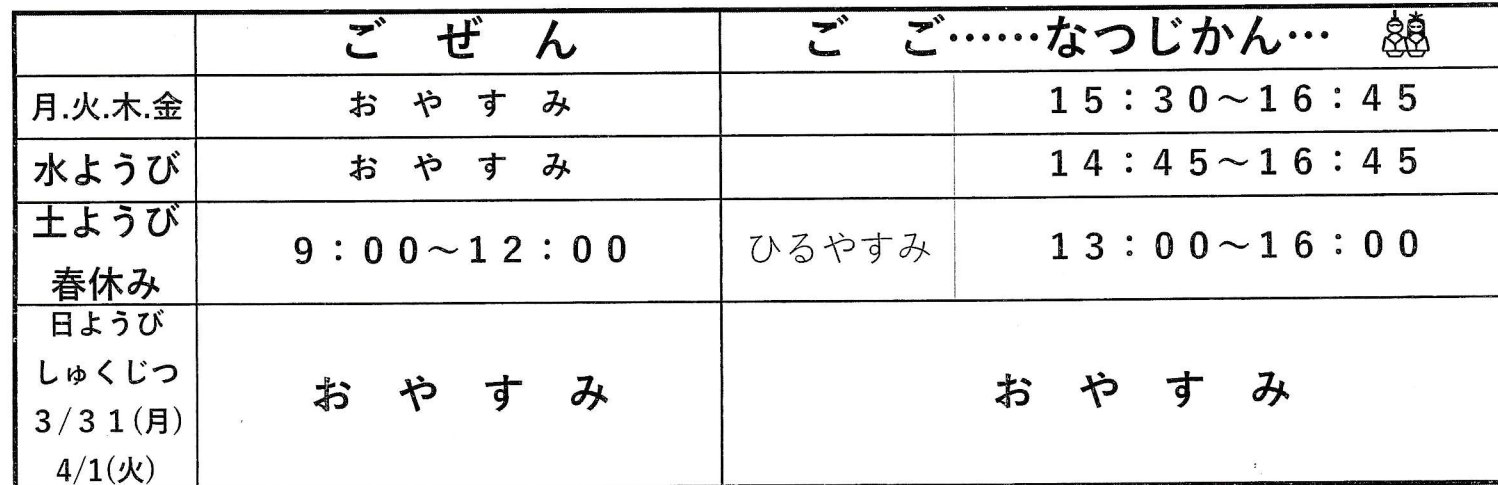 ごぜん ごご……なつじかん…
月.火.木.金 おやすみ 15:30～16:45
水ようび おやすみ 14:45～16:45
土ようび
春休み 9:00～12:00 ひるやすみ 13:00～16:00
日ようび
しゅくじつ
3/31(月)
4/1(火)
おやすみ おやすみ